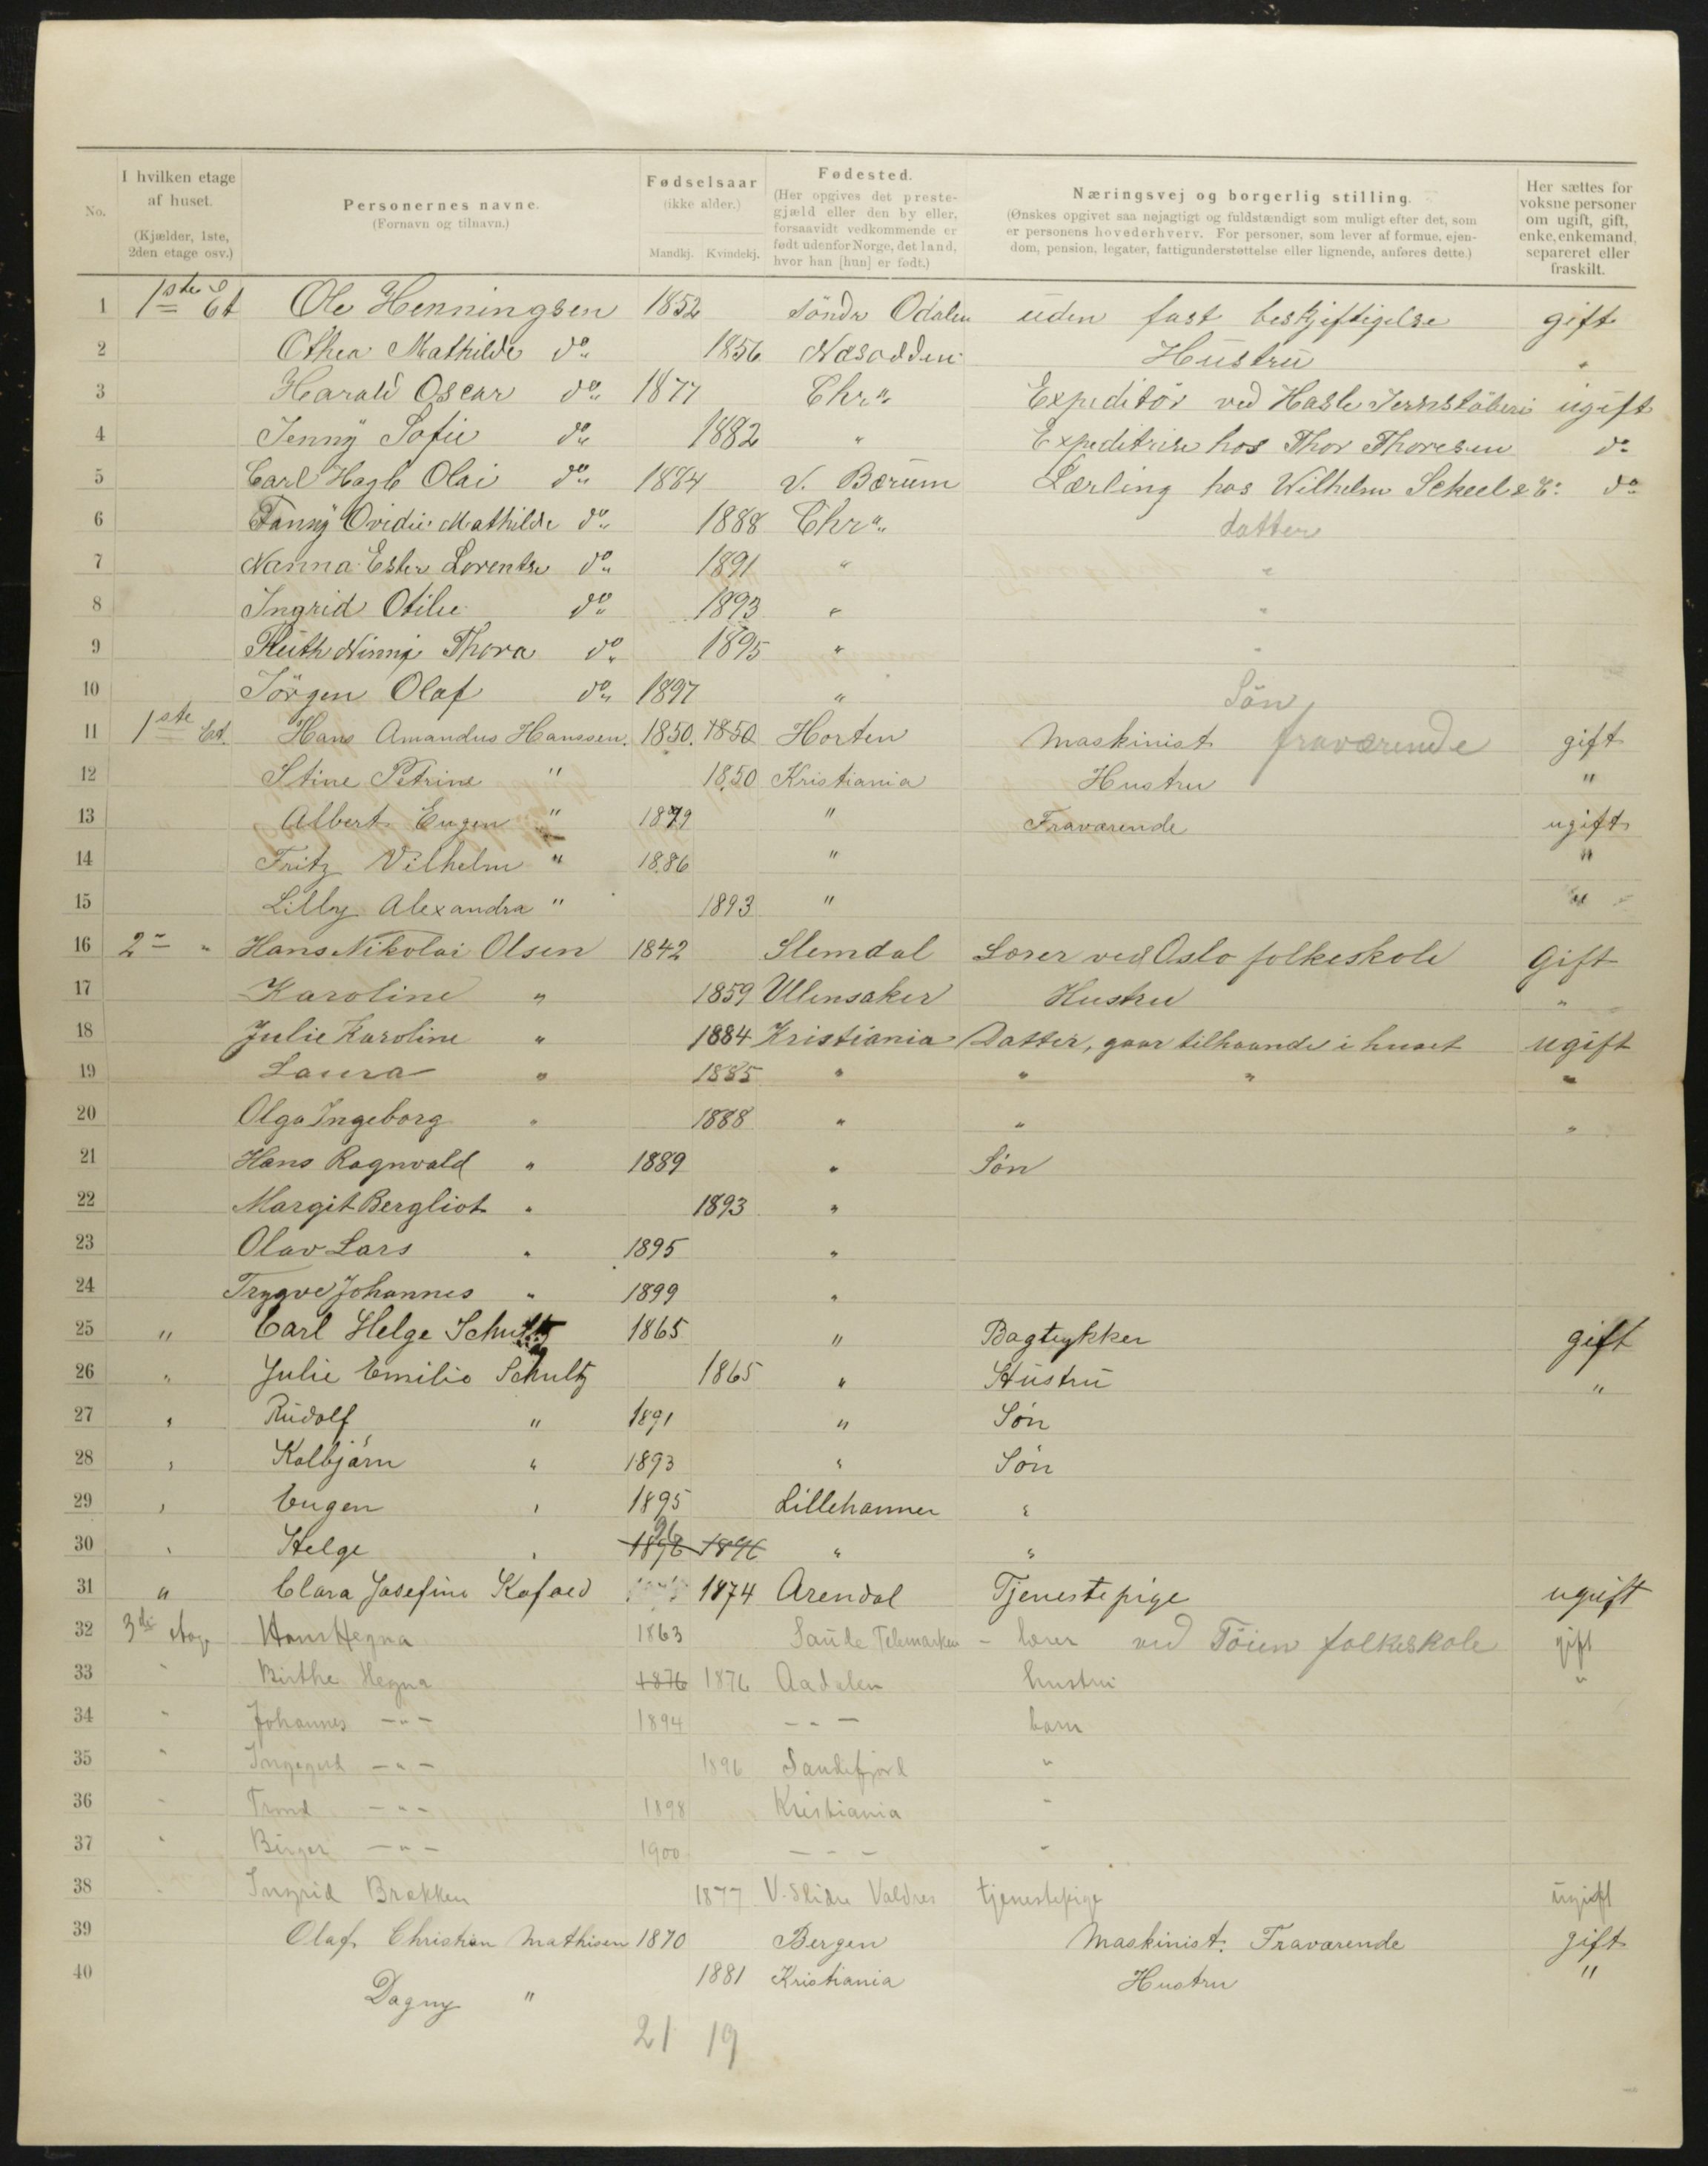 No.
I hvilken etage af huset. (Kjælder, 1ste, 2den etage osv.)
Personernes navne. (Fornavn og tilnavn.)
Fødselsaar (ikke alder.)
Mandkj. Kvindekj.
Fødested. (Her opgives det prestegjæld eller den by eller, forsaavidt vedkommende er født udenfor Norge, det land, hvor han [hun] er født.)
Næringsvej og borgerlig stilling. (Ønskes opgivet saa nøjagtigt og fuldstændigt som muligt efter det, som er personens hovederhverv. For personer, som lever af formue, ejendom, pension, legater, fattigunderstøttelse eller lignende, anføres dette.)
Her sættes for voksne personer om ugift, gift, enke, enkemand, separeret eller fraskilt.
1 1ste Et Ole Henningsen 1852 Söndr Odalen uden fast beskjeftigelse gift
2 Othea Mathilde do 1856 Næsodden Hustru "
3 Harald Oscar do 1877 Chra Expeditör ved Hasle Jernstöberi ugift
4 Jenny Sofie do 1882 " Expeditrise hos Thor Thoresen do
5 Carl Hagb Olai do 1884 V. Bærum Lærling hos Wilhelm Scheel & Co do
6 Fanny Ovidie Mathilde do 1888 Chra datter
7 Nanna Ester Lorentse do 1891 " "
8 Ingrid Otilie do 1893 " "
9 Ruth Ninni Thora do 1895 " "
10 Jörgen Olaf do 1897 " Sön
11 1ste Et. Hans Amandus Hanssen. 1850. 1850 Horten Maskinist fraværende gift
12 Stine Petrine " 1850 Kristiania Hustru "
13 Albert Eugen " 1879 " Fraværende ugift
14 Fritz Vilhelm " 1886 " "
15 Lilly Alexandra " 1893 " "
16 2- " Hans Nikolai Olsen 1842 Slemdal Lærer ved Oslo folkeskole Gift
17 Karoline " 1859 Ullensaker Hustru "
18 Julie Karoline " 1884 Kristiania Datter, gaar tilhaande i huset ugift
19 Laura " 1885 " " " "
20 Olga Ingeborg " 1888 " " "
21 Hans Ragnvald " 1889 " Søn
22 Margit Bergliot " 1893 "
23 Olav Lars " 1895 "
24 Trygve Johannes " 1899 "
25 " Carl Helge Schultz 1865 " Bogtrykker gift
26 " Julie Emilie Schultz 1865 " Hustru "
27 " Rudolf " 1891 " Søn
28 " Kolbjørn " 1893 " Søn
29 " Eugen " 1895 Lillehammer "
30 " Helge " 96 1896 " "
31 " Clara Josefine Kofoed 1874 Arendal Tjenestepige ugift
32 3die etage Hans Hegna 1863 Saude Telemarken - lærer ved Töien folkeskole gift
33 " Birthe Hegna 1876 1876 Aadalen hustru "
34 " Johannes - " - 1894 - - - barn
35 " Ingegerd - " - 1896 Sandefjord "
36 " Trond - " - 1898 Kristiania "
37 " Birger - " - 1900 - - - "
38 " Ingrid Brekken 1877 V. Slidre Valdres tjenestepige ugift
39 Olaf Christian Mathisen 1870 Bergen Maskinist. Fraværende gift
40 Dagny " 1881 Kristiania Hustru "
21 19